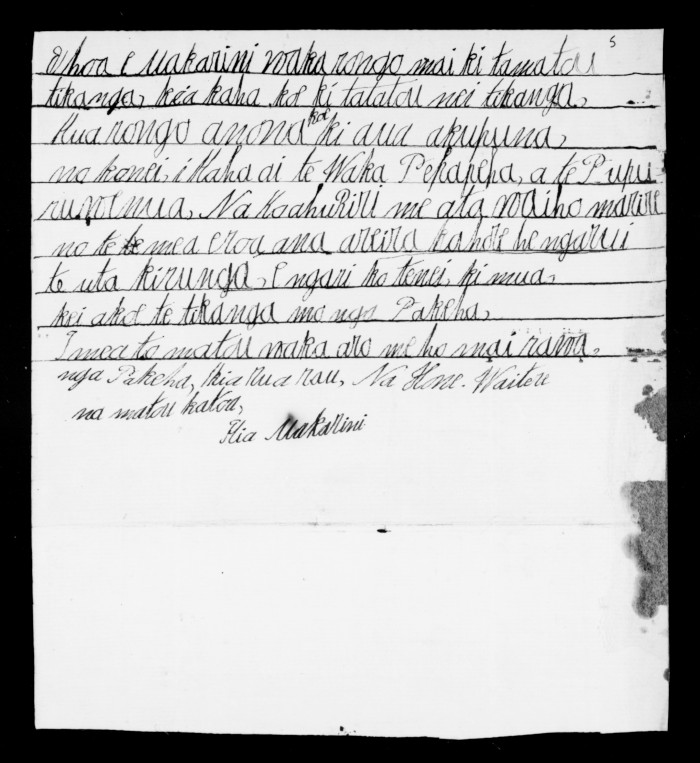 5
E hoa e Makarini waka rongo mai ki tamatou
tikanga, kia kaha koe ki tatatou nei tikanga,
Kua rongo anona koe ki aua akupuna,
no konei, i Kaha ai te Waka Pekapeha, a te Pupu
ruwenua, Na Kaahu Riri me ata waiho marire
no te mea eroa ana areira kahore he ngarui
te uta kirunga, E ngari ko tenei, ki mua,
kei akoe te tikanga mo nga Pakeha,
I mea to matou waka aro me ho mai rawa,
nga Pakeha, kia rua rau, Na Hone. Waitere
na matou katou,
Kia Makarini